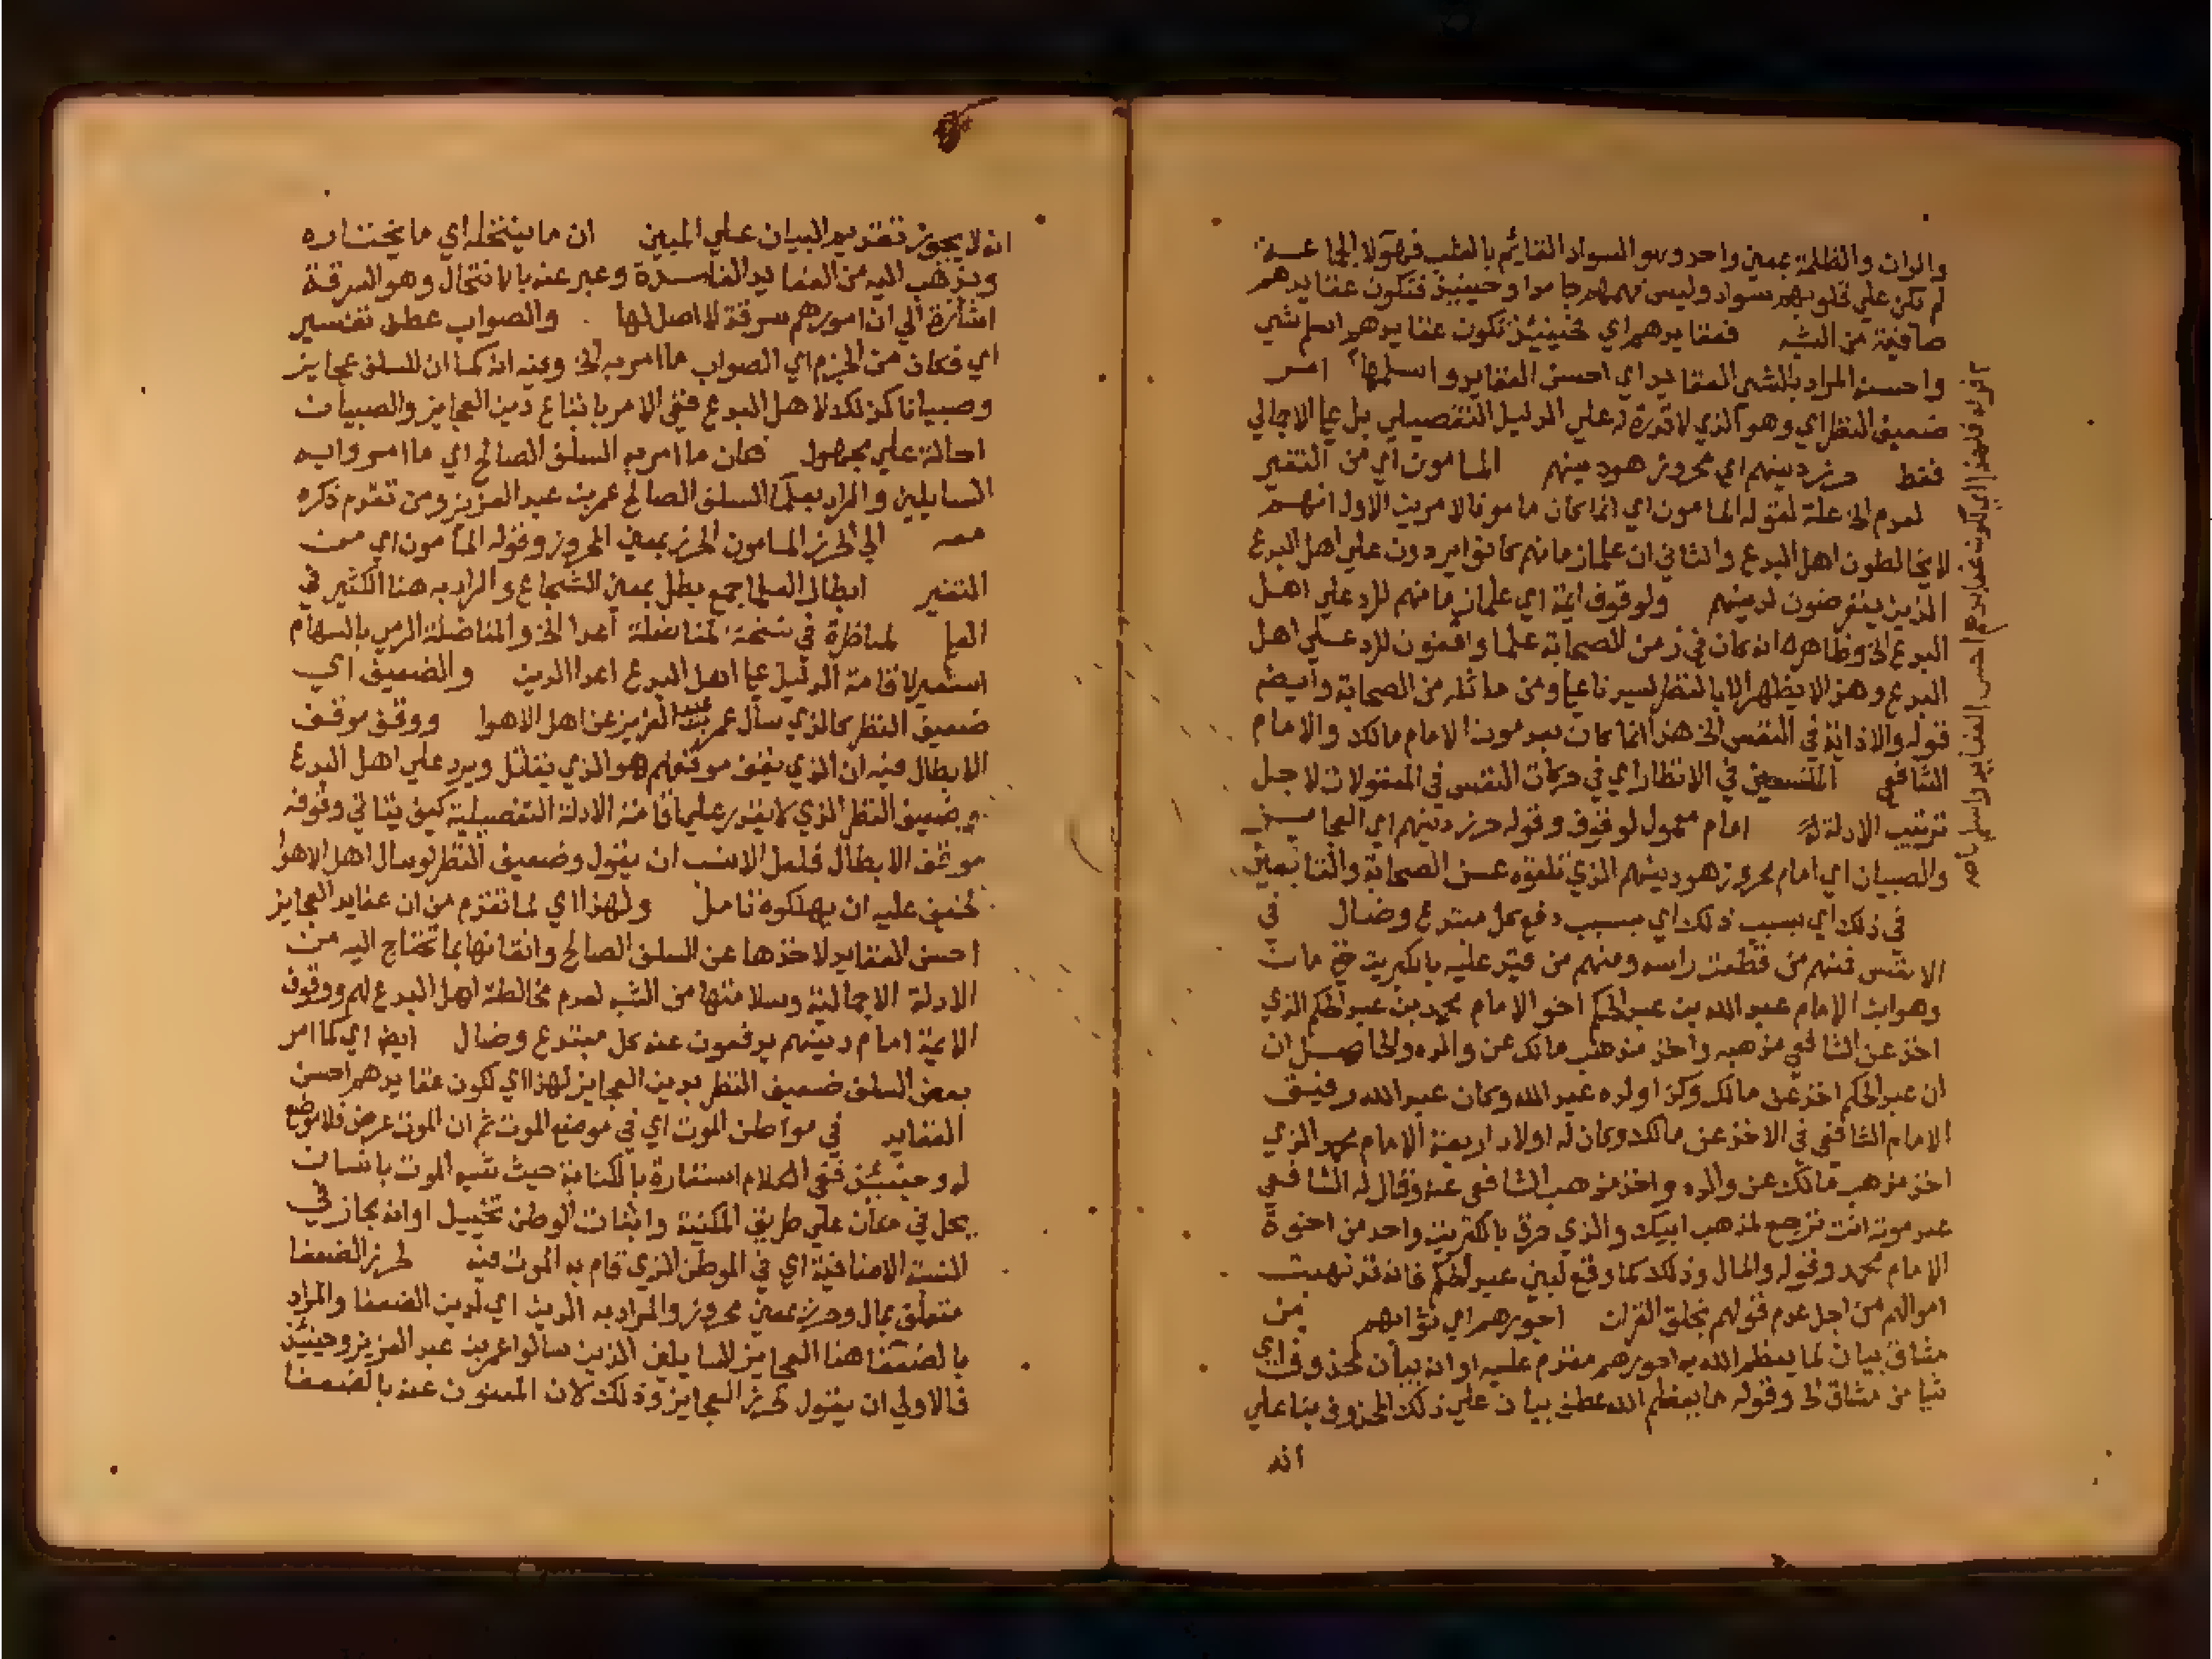 والران والظلمة بمعني واحد وهو السواد القايم بالقلب فهولا الجماعة
لم تكن علي قلوبهم سواد وليس فهمهم جامدا وحينيذ فتكون عقايدهم
صافية من الشبه فعقايدهم اي فحينيذ تكون عقايدهم اسلم شي
واحسن المراد بالشي العقايد اي احسن العقايد واسلمها امر
ضعيف النظر اي وهو الذي لا قدرة له علي الدليل التفصيلي بل علي الاجمالي
فقط حرز دينهم اي محروز هو دينهم المامون اي من التغير
لعدم الخ علة لقوله المامون اي انما كان مامونا لامرين الاول انهم
لا يخالطون اهل البدع والثاني ان علما زمانهم كانوا يردون علي اهل البدع
الذين يتعرضون لدينهم ولوقوف ايمة اي علما زمانهم للرد علي اهل
البدع الخ وظاهره انه كان في زمن الصحابة علما واقفون للرد علي اهل
البدع وهذا لا يظهر الا بالنظر لسيدنا علي ومن ماثله من الصحابة وايضا
قوله والاذاية في النفس الخ هذا انما كان بعد موت الامام مالك والامام
الشافعي المتسعين في الانظار اي في حركات النفس في المعقولات لاجل
ترتيب الادلة امام معمول لوقوف وقوله حرز دينهم اي العجايز
والصبيان اي امام محروز هو دينهم الذي تلقوه عن الصحابة والتابعين
في ذلك اي بسبب ذلك اي بسبب دفع كل مبتدع وضال في
الانفس فمنهم من قطعت راسه ومنهم من عليه بالكبريت حتي مات
وهو ابن الامام عبد الله بن عبد الحكم اخو الامام محمد بن عبد الحكم الذي
اخذ عن الشافعي مذهبه واخذ مذهب مالك عن والده والحاصل ان
ان عبد الحكم اخذ عن مالك وكذا ولده عبد الله وكان عبد الله رفيق
الامام الشافعي في الاخذ عن مالك وكان له اولاد اربعة الامام محمد الذي
اخذ مذهب مالك عن والده واخذ مذهب الشافعي عنه وقال له الشافعي
عند موته انت ترجع لمذهب ابيك والذي حرق بالكبريت واحد من اخوة
الامام محمد وقوله والمال وذلك كما وقع لبني عبد الحكم فانه قد نهبت
اموالهم من اجل عدم قولهم بخلق القران اجورهم اي ثوابهم من
مشاق بيان لما يعظم الله به اجورهم مقدم عليه او انه بيان لمحذوف اي
شيا من مشاق الخ وقوله ما يعظم الله عطف بيان علي ذلك المحذوف بنا علي
انه
قوله فلهذا اي لكون عقايدهم احسن العقايد واسلمها
انه لا يجوز تقديم البيان علي المبين ان ما ينتحله اي ما يختاره
ويذهب اليه من العقايد الفاسدة وعبر عنه بالانتحال وهو السرقة
اشارة الي ان امورهم سرقة لا اصل لها والصواب عطف تفسير
اي فكان من الحزم اي الصواب ما امر به الخ وفيه انه كما ان للسلف عجايز
وصبيانا كذلك لاهل البدع ففي الامر باتباع دين العجايز والصبيان
احالة علي مجهول فكان ما امر به السلف الصالح اي ما امروا به
السايلين والمراد بعلما السلف الصالح عمر بن عبد العزيز ومن تقدم ذكره
معه الي الحرز المامون الحرز بمعني المحروز وقوله المامون اي من
التغير ابطال العلما جمع بطل بمعني الشجاع والمراد به هنا الكثير في
العلم لمناظرة في نسخة لمناضلة اعدا الخ والمناضلة الرمي بالسهام
استعير لاقامة الدليل علي اهل البدع اعدا الدين والضعيف اي
ضعيف النظر كالذي سال عمر بن عبد العزيز عن اهل الاهوا ووقف موقف
الابطال فيه ان الذي يقف موقفهم هو الذي يقاتل ويرد علي اهل البدع
وضعيف النظر الذي لا يقدر علي اقامة الادلة التفصيلية كيف يتاتي وقوفه
موقف الابطال فلعل الانسب ان يقول وضعيف النظر لو سال اهل الاهوا
لخيف عليه ان يهلكوه تامل ولهذا اي لما تقدم من ان عقايد العجايز
احسن العقايد لاخذها عن السلف الصالح واتقانها بما تحتاج اليه من
الادلة الاجمالية وسلامتها من الشبه لعدم مخالطة اهل البدع لهم ووقوف
الايمة امام دينهم يدفعون عنه كل مبتدع وضال ايضا اي كما امر
بعض السلف ضعيف النظر بدين العجايز لهذا اي لكون عقايدهم احسن
العقايد في مواطن الموت اي في موضع الموت ثم ان الموت عرض فلا موضع
له وحينيذ ففي الكلام استعارة بالكناية حيث شبه الموت بانسان
يحل في مكان علي طريق المكنية واثبات الوطن تخييل او انه مجاز في
النسبة الاضافية اي في الموطن الذي قام به الموت فيه لحرز الضعفا
متعلق بمال وحرز بمعني محروز والمراد به الدين اي لدين الضعفا والمراد
بالضعفا هنا العجايز للسايلين الذين سالوا عمر بن عبد العزيز وحينيذ
فالاولي ان يقول لحرز العجايز وذلك لان المعنون عنه بالضعفا